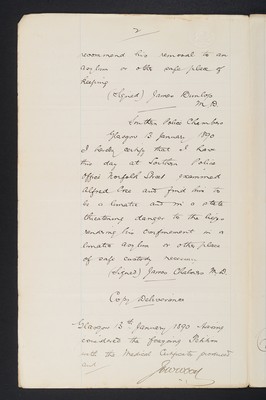 2
recommend his removal to an
asylum or other safe place of
keeping
(Signed) James Dunlop
M.D.
Southern Police Chambers
Glasgow 3 January 1890
I hereby certify that I have
this day at Southern Police
Office Norfolk Street examined
Alfred Coxe and find him to
be a lunatic and in a state
threatening danger to the lieges
rendering his confinement in a
lunatic asylum or other place
of safe custody necessary
(Signed) James Chalmers M.D.
Copy Deliverance
Glasgow 3rd January 1890 Having
considered the foregoing Petition
with the Medical Certificate produced
and